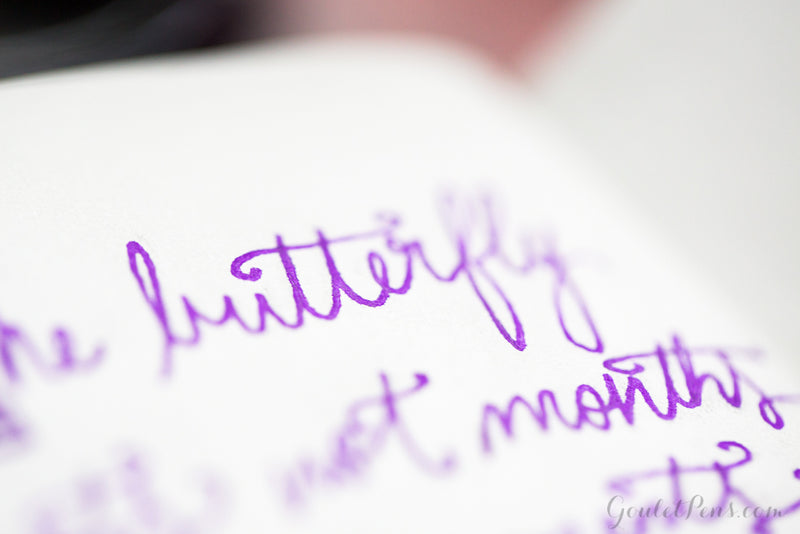 he butterfly
not months
GouletPens.com